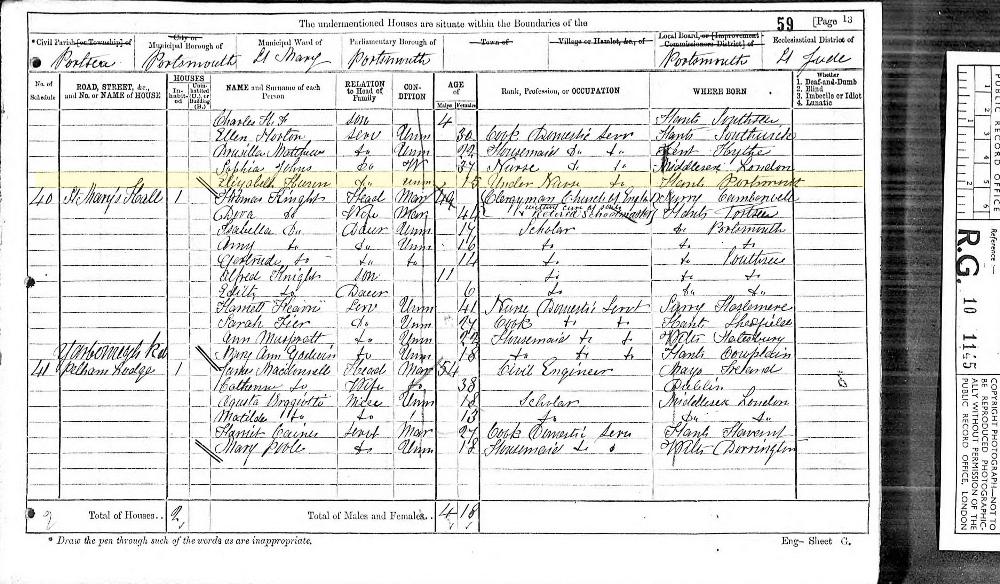 The undermentioned Houses are situate within the Boundaries of the
59 [Page 13
*Civil Parish [or Township] of
Portsea
City or Municipal Borough of
Portsmouth
Municipal Ward of
St Mary
Parliamentary Borough of
Portsmouth
Town of
Village or Hamlet, &c., of
Local Board, or [Improvement Commissioners District] of
Portsmouth
Ecclesiastical District of
St Jude
No. of Schedule
ROAD, STREET, &c., and No. or NAME of HOUSE
HOUSES
Inhabited
Uninhabited (U.), or Building (B.)
NAME and Surname of each Person
RELATION to Head of Family
CONDITION
AGE of
Males
Females
Rank, Profession, or OCCUPATION
WHERE BORN
Whether
1. Deaf-and-Dumb
2. Blind
3. Imbecile or Idiot
4. Lunatic
Charles H. F son 4 Hants Southsea
Ellen Norton serv Unm 30 Cook Domestic Serv Hants Southwick
Matthew do Unm 22 Housemaid do do Kent Hythe
Sophia Johns do W 37 Nurse do do Middlesex London
Elizabeth do unm 15 Under Nurse do Hants Portsmouth
40 St Mary's Hall 1 Thomas Knight Head Mar 49 Clergyman Church of Engld Surry Camberwell
without cure of souls
Retired Schoolmaster
do Wife Mar 44 Hants Portsea
Isabella do Daur Unm 17 Scholar do Portsmouth
Amy do do Unm 16 do do do
Gertrude do do do 14 do do Southsea
Alfred Knight son 11 do do do
Edith do Daur 6 do do do
Harriett Serv Unm 41 Nurse Domestic Servt Surry Haslemere
Sarah do Unm 27 Cook do do Hants
Ann do Unm 22 Housemaid do do Wilts
Mary Ann Godwin do Unm 18 do do do Hants
Yarborough Rd
41 Pelham Lodge 1 James Macdonnell Head Mar 54 Civil Engineer Mayo Ireland
Catherine do Wife do 38 Dublin
Agusta Braggiotti Niece Unm 18 Scholar Middlesex London
Matilde do do 13 do do do
Harriet Caines Servt Mar 27 Cook Domestic Serv Hants Havant
Mary Poole do Unm 18 Housemaid do Wilts Dorrington
2 Total of Houses.. 2 Total of Males and Females.. 4 18
* Draw the pen through such of the words as are inappropriate.
Eng—Sheet G.
PUBLIC RECORD OFFICE
Reference:—
R.G. 10 1145
COPYRIGHT PHOTOGRAPH—NOT TO BE REPRODUCED PHOTOGRAPHICALLY WITHOUT PERMISSION OF THE PUBLIC RECORD OFFICE, LONDON